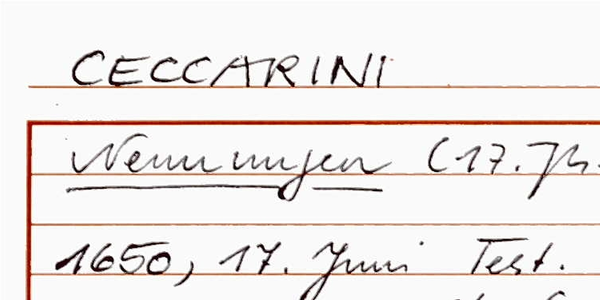 CECCARINI
Nennungen (17. Jh.
1650, 17. Juni Test.